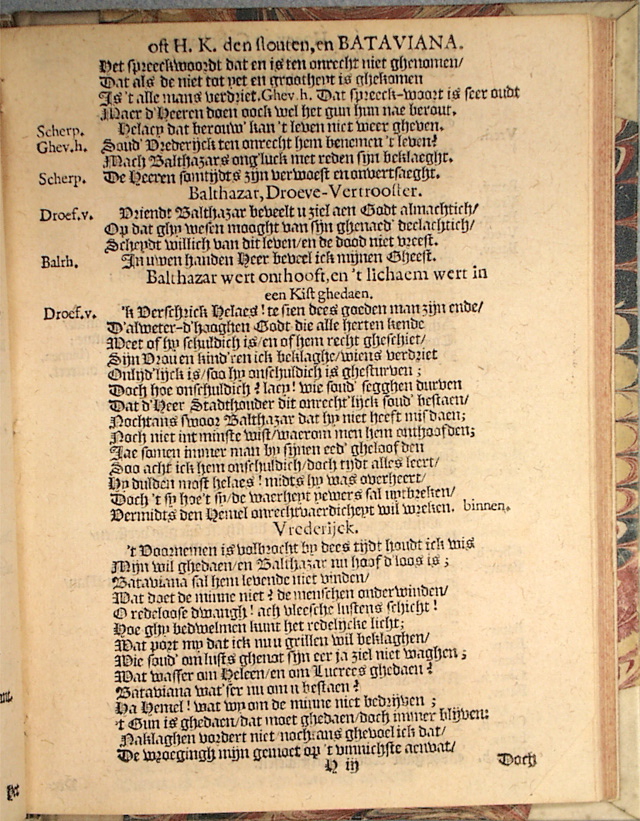 oft H. K. den stouten, en BATAVIANA.
Het spreeckwoordt dat en is ten onrecht niet ghenomen/
Dat als de niet tot yet en grootheyt is ghekomen
Is 't alle mans verdriet. Ghev.h. Dat spreeck-woort is seer oudt
Maer d'Heeren doen oock wel het gun hun nae berout.
Scherp. Helacy dat berouw' kan 't leven niet weer gheven.
Ghev.h. Soud' Vrederijck ten onrecht hem benemen 't leven?
Mach Balthazars ong'luck met reden sijn beklaeght.
Scherp. De Heeren somtijdts zijn verwoest en onvertsaeght.
Balthazar, Droeve-Vertrooster.
Droef.v. Vriendt Balthazar beveelt u ziel aen Godt almachtich/
Op dat ghy wesen mooght van sijn ghenaed' deelachtich/
Scheydt willich van dit leven/en de dood niet vreest.
Balth. In uwen handen Heer beveel ick mijnen Gheest.
Balthazar wert onthooft, en 't lichaem wert in
een Kist ghedaen.
Droef.v. 'k Verschrick Helaes! te sien dees goeden man zijn ende/
D'alweter-d'hooghen Godt die alle herten kende
Weet of hy schuldich is/en of hem recht gheschiet/
Sijn Vrou en kind'ren ick beklaghe/wiens verdriet
Onlijd'lijck is/soo hy onschuldich is ghesturven;
Doch hoe onschuldich? lacy! wie soud' segghen durven
Dat d'Heer Stadthouder dit onrecht'lijck soud' bestaen/
Nochtans swoor Balthazar dat hy niet heeft misdaen;
Noch niet int minste wist/waerom men hem onthoofden;
Jae somen immer man by sijnen eed' gheloofden
Soo acht ick hem onschuldich/doch tijdt alles leert/
Hy dulden most helaes! midts hy was overheert/
Doch 't sy hoe't sy/de waerheyt yewers sal uytbreken/
Vermidts den Hemel onrechtvaerdicheyt wil wreken. binnen.
Vrederijck.
't Voornemen is volbrocht by dees tijdt houdt ick wis
Mijn wil ghedaen/en Balthazar nu hoofd'loos is;
Bataviana sal hem levende niet vinden/
Wat doet de minne niet? de menschen onderwinden/
O redeloose dwangh! ach vleesche lustens schicht!
Hoe ghy bedwelmen kunt het redelycke licht;
Wat port my dat ick nu u grillen wil beklaghen/
Wie soud' om lusts ghenot sijn eer ja ziel niet waghen;
Wat wasser om Heleen/en om Lucrees ghedaen?
Bataviana wat'ser nu om u bestaen?
Ha Hemel! wat wy om de minne niet bedrijven;
't Gun is ghedaen/dat moet ghedaen/doch immer blijven:
Naklaghen vordert niet/nochtans ghevoel ick dat/
De wroegingh mijn gemoet op 't vinnichste aenvat/
H iij
Doch